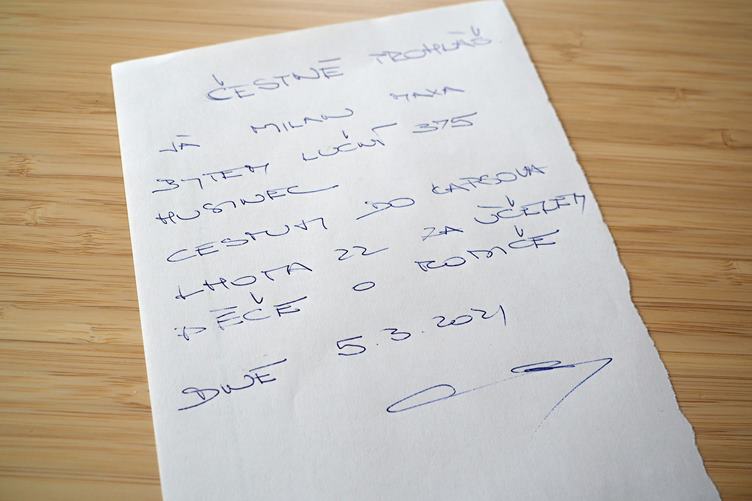 ČESTNĚ PROHLAŠ
JÁ MILAN MAXA
BYTEM LUČNÍ 375
HUSINEC
CESTUJI DO KAPSOVA
LHOTA 22 ZA ÚČELEM
PÉČE O RODIČE
DNE 5.3.2021